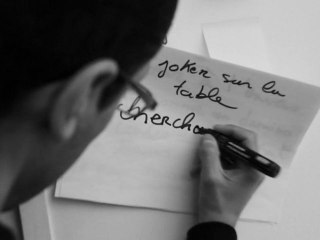 joker sur la
table
chercha